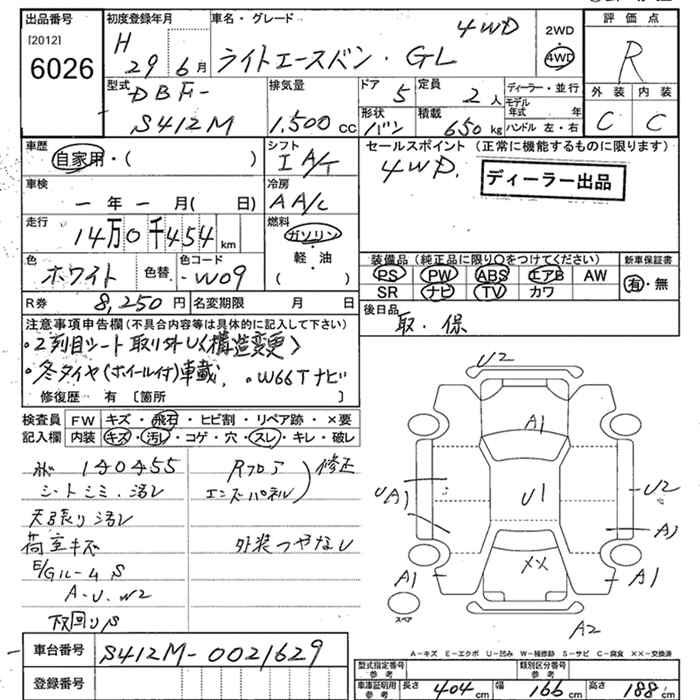 出品番号 初度登録年月 車名・グレード 評価点
[2012]
6026
H 29 6月 ライトエースバン・GL 4WD
2WD
4WD
R
型式 排気量 ドア 定員 ディーラー・並行 外装 内装
DBF-
S412M 1,500 cc 5 2人 モデル年式 年
形状 積載 ハンドル 左・右
バン 650 kg C C
車歴 シフト セールスポイント (正常に機能するものに限ります)
自家用・( ) IA/T 4WD. ディーラー出品
車検 冷房
一年一月( 日) AA/C
走行 燃料
14万0千454km ガソリン
軽・油
( )
色 色替 色コード
ホワイト -W09
装備品 (純正品に限り○をつけてください) 新車保証書
PS PW ABS エアB AW 有・無
SR ナビ TV カワ
R券 8,250円 名変期限 月 日
後日品
取・保
注意事項申告欄(不具合内容等は具体的に記入して下さい)
・2列目シート取り外し〈構造変更〉
・冬タイヤ(ホイール付)車載 。W66Tナビ
修復歴 有 〔箇所
検査員 FW キズ・飛石・ヒビ割・リペア跡・×要
記入欄 内装 キズ・汚レ・コゲ・穴・スレ・キレ・破レ
140455 Rフロア 修正
シートシミ・汚レ エンドパネル
天張り汚レ
荷室キズ 外装つやなし
E/Gルーム S
A.U.W2
下回りS
U2
A1
UA1 U1 U2
A1
A1 XX A1
スペア
A2
A-キズ E-エクボ U-凹み W-補修跡 S-サビ C-腐食 XX-交換済
車台番号 S412M-0021629
登録番号
型式指定番号 参考 類別区分番号 参考
車庫証明用 参考 長さ 404cm 幅 166cm 高さ 188cm